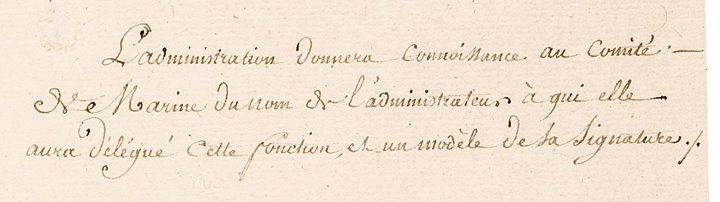 L'administration donnera connoissance au Comité
de Marine du nom de l'administrateur à qui elle
aura délégué cette fonction, et un modèle de sa signature./.